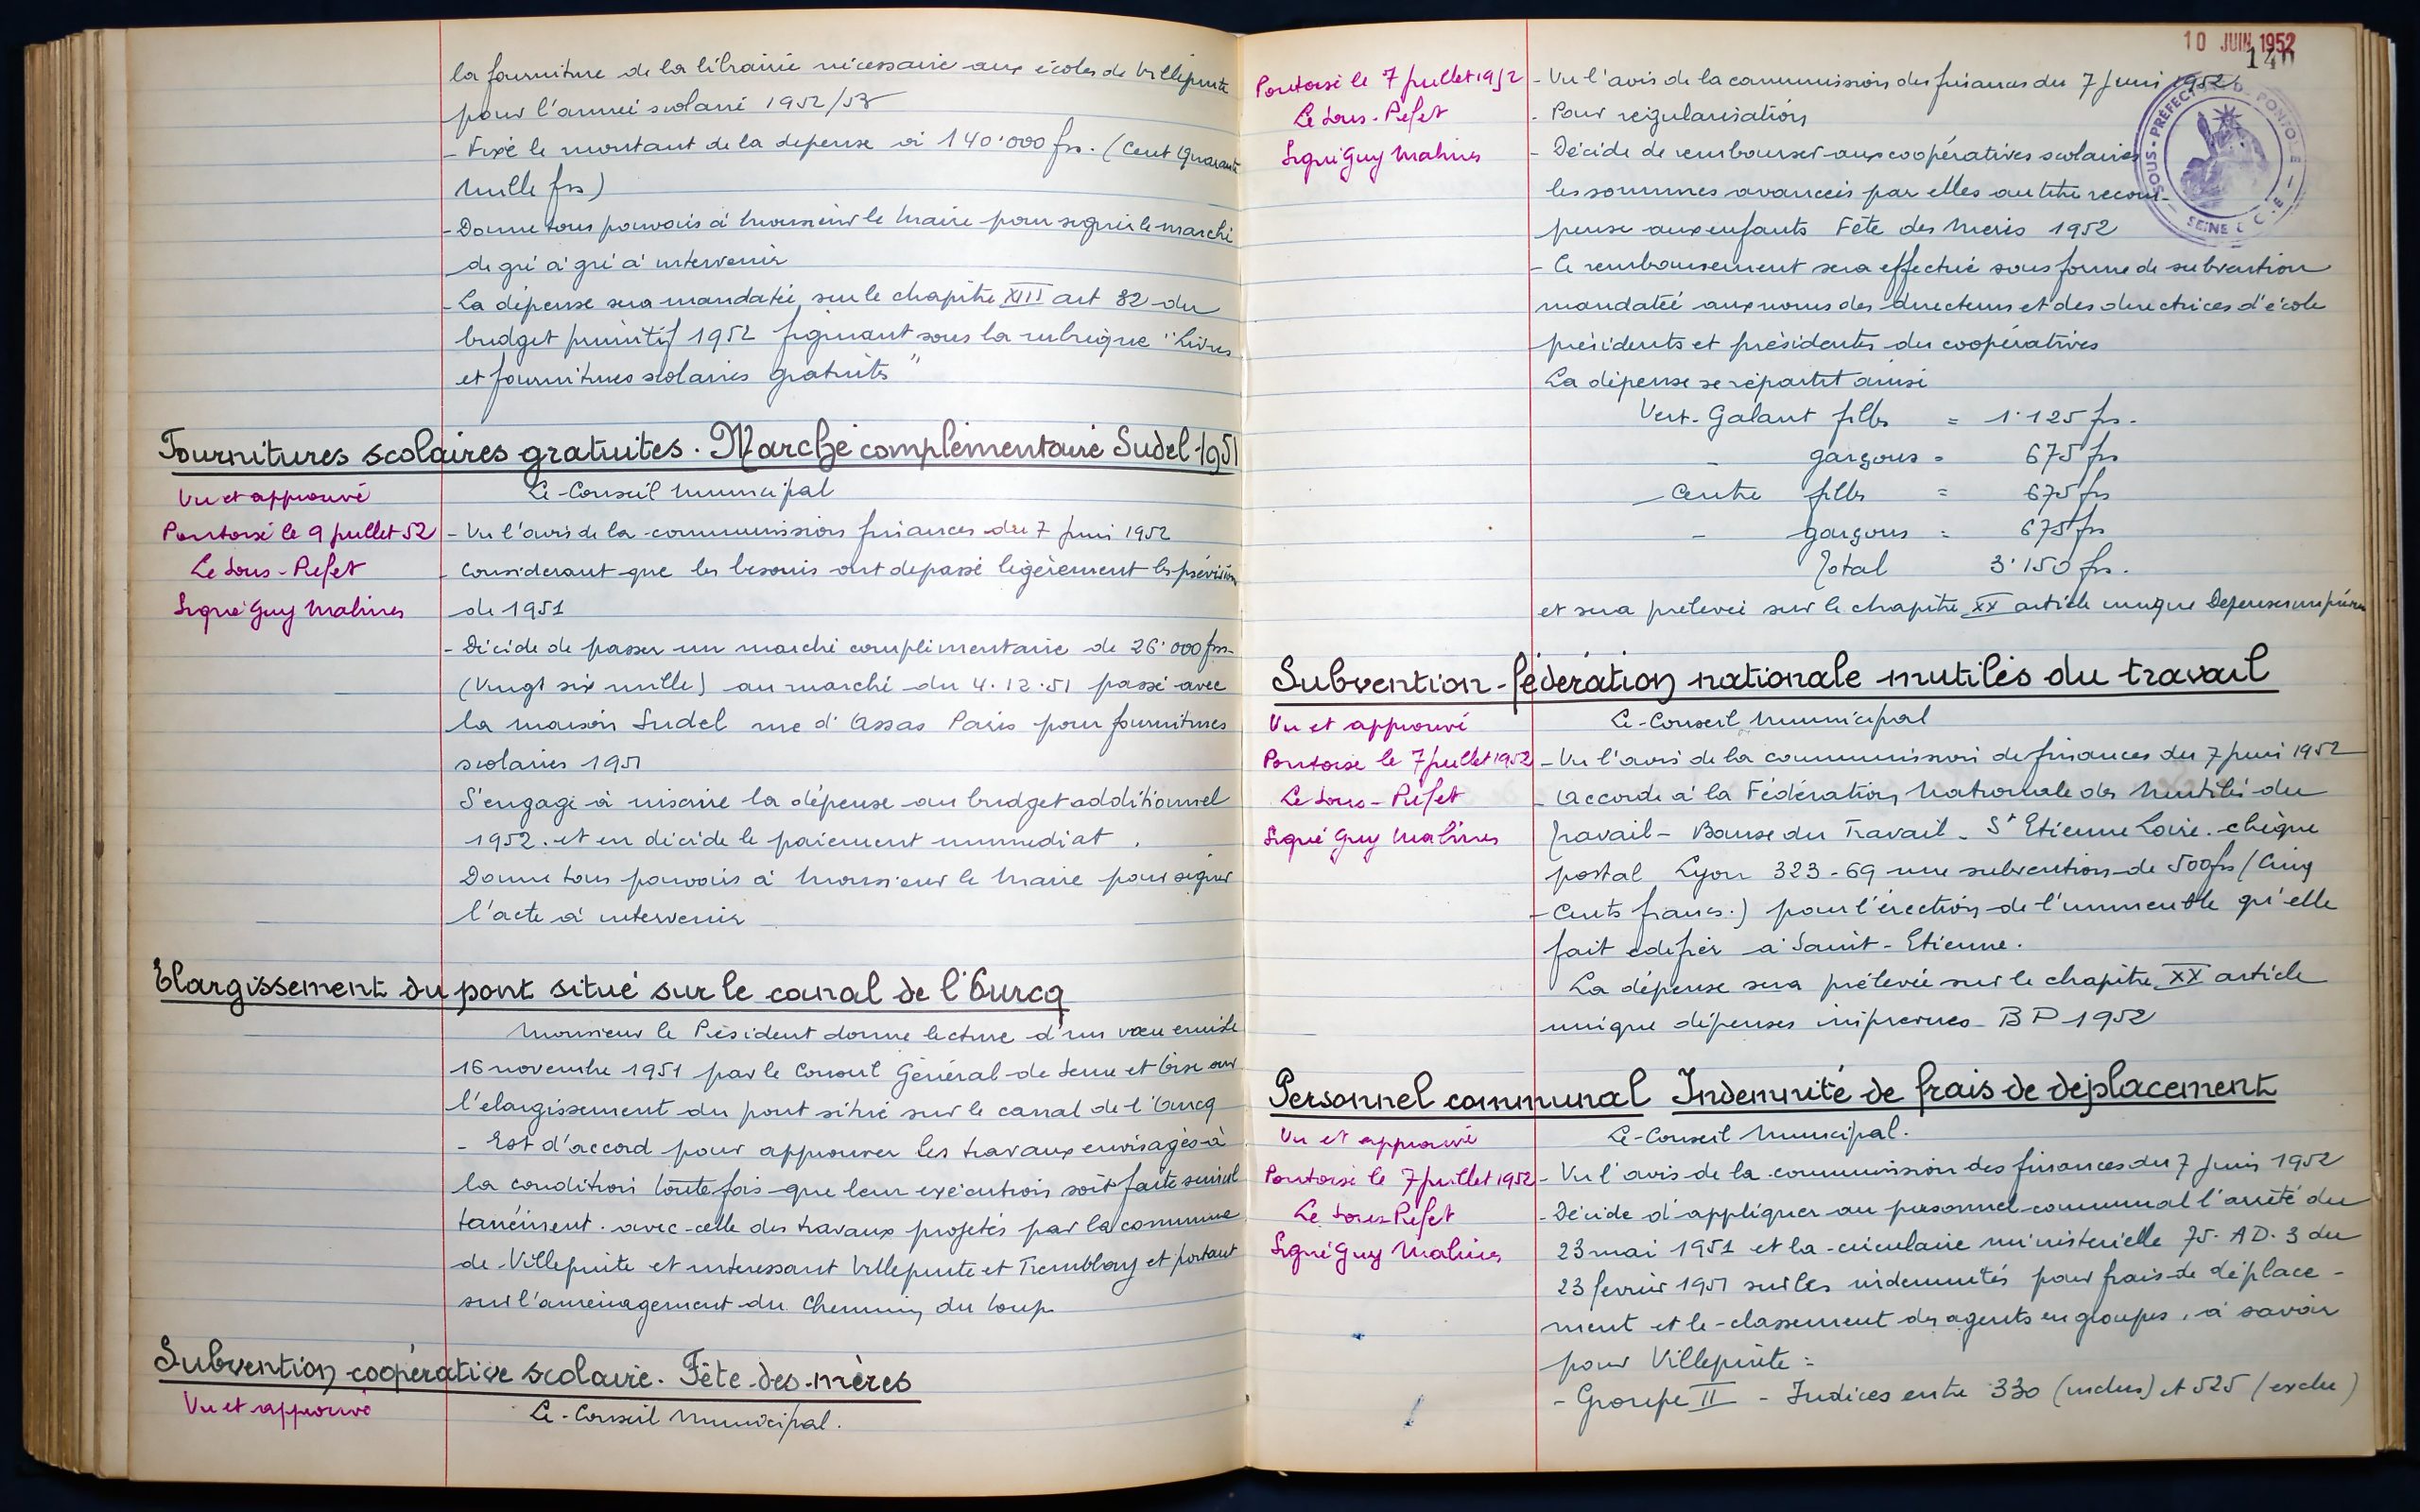 la fourniture de la librairie nécessaire aux écoles de Villepinte
pour l'année scolaire 1952/53
- Fixe le montant de la depense à 140.000 frs. (Cent Quarante
mille frs)
- Donne tous pouvoirs à Monsieur le Maire pour signer le marché
de gré à gré à intervenir
- La dépense sera mandatée sur le chapitre XIII art 82 du
budget primitif 1952 figurant sous la rubrique "Livres
et fournitures scolaires gratuites"
Fournitures scolaires gratuites. Marché complémentaire Sudel-1951
Vu et approuvé
Pontoise le 9 juillet 52
Le Sous-Prefet
Signé Guy Malines
Le Conseil Municipal
- Vu l'avis de la commission finances du 7 Juin 1952
- Considerant que les besoins ont depassé légèrement les prévisions
de 1951
- Décide de passer un marché complémentaire de 26.000 frs-
(Vingt six mille) au marché du 4.12.51 passé avec
la maison Sudel rue d'Assas Paris pour fournitures
scolaires 1951
S'engage à inscrire la dépense au budget additionnel
1952. et en décide le paiement immédiat.
Donne tous pouvoirs à Monsieur le Maire pour signer
l'acte à intervenir
Elargissement du pont situé sur le canal de l'Ourcq
Monsieur le Président donne lecture d'un vœu émis le
16 novembre 1951 par le Conseil Général de Seine et Oise sur
l'élargissement du pont situé sur le canal de l'Ourcq
- Est d'accord pour approuver les travaux envisagés à
la condition toutefois que leur exécution soit faite simul
tanément. avec celle des travaux projetés par la commune
de Villepinte et interessant Villepinte et Tremblay et portant
sur l'aménagement du Chemin du Loup
Subvention coopérative scolaire. Fête des mères
Vu et approuvé
Le Conseil Municipal.
10 JUIN 1952
Pontoise le 7 juillet 1952
Le Sous-Préfet
Signé Guy Malines
SOUS-PRÉFECTURE DE PONTOISE
SEINE & OISE
- Vu l'avis de la commission des finances du 7 Juin 1952
- Pour régularisation
- Décide de rembourser aux coopératives scolaires
les sommes avancées par elles au titre récom-
pense aux enfants Fête des Mères 1952
- Ce remboursement sera effectué sous forme de subvention
mandatée aux noms des directeurs et des directrices d'école
présidents et présidentes des coopératives
La dépense se répartit ainsi
Vert-Galant filles = 1.125 frs.
- garçons = 675 frs
- Centre filles = 675 frs
- garçons = 675 frs
Total 3.150 frs.
et sera prélevée sur le chapitre XX article unique Dépenses imprévues
Subvention-fédération nationale mutilés du travail
Vu et approuvé
Pontoise le 7 juillet 1952
Le Sous-Préfet
Signé Guy Malines
Le Conseil Municipal
- Vu l'avis de la commission de finances du 7 Juin 1952
- Accorde à la Fédération Nationale des Mutilés du
Travail - Bourse du Travail - St Etienne Loire. chèque
postal Lyon 323-69 une subvention de 500 frs (Cinq
Cents francs.) pour l'érection de l'immeuble qu'elle
fait édifier à Saint-Etienne.
La dépense sera prélevée sur le chapitre XX article
unique dépenses imprévues BP 1952
Personnel communal Indemnité de frais de déplacement
Vu et approuvé
Pontoise le 7 juillet 1952
Le Sous-Préfet
Signé Guy Malines
Le Conseil Municipal.
- Vu l'avis de la commission des finances du 7 Juin 1952
- Décide d'appliquer au personnel communal l'arrêté du
23 mai 1951 et la circulaire ministerielle 75. AD. 3 du
23 fevrier 1951 sur les indemnités pour frais de déplace-
ment et le classement des agents en groupes, à savoir
pour Villepinte:
- Groupe II - Indices entre 330 (inclus) et 525 (exclu)